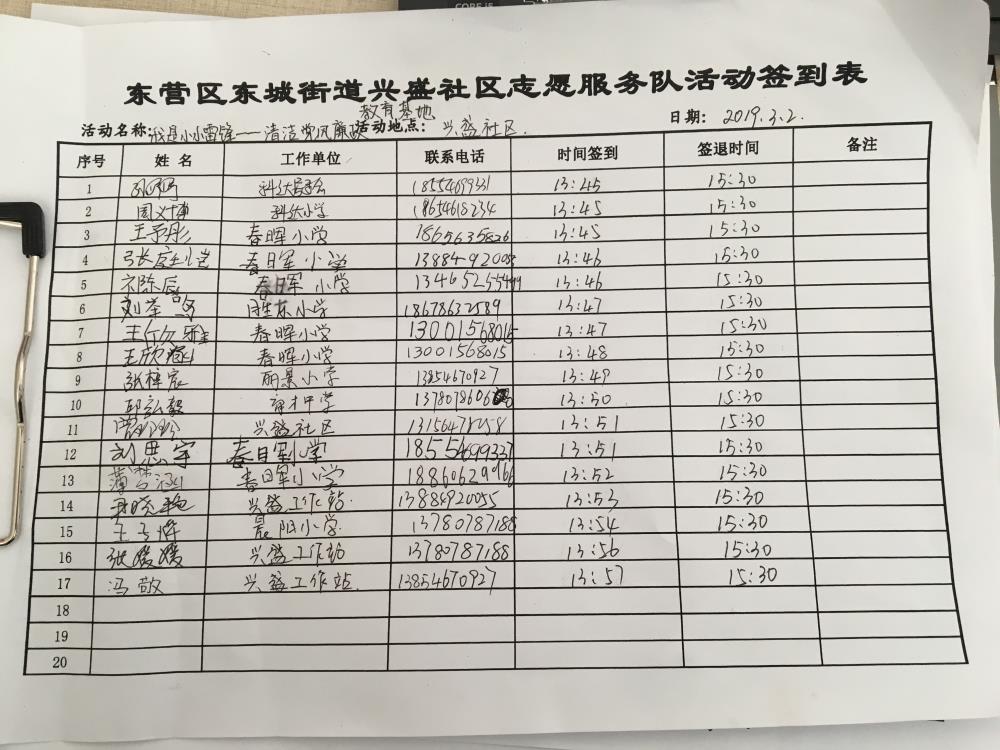 CORE i5
东营区东城街道兴盛社区志愿服务队活动签到表
教育基地
活动名称：我是小小雷锋——清洁党风廉政 活动地点：兴盛社区. 日期：2019.3.2.
序号 姓名 工作单位 联系电话 时间签到 签退时间 备注
1 18554699331 13:45 15:30
2 科达小学 18654618234 13:45 15:30
3 王予彤 春晖小学 1865635826 13:45 15:30
4 春晖小学 1388492008 13:46 15:30
5 陈辰 春晖小学 13:46 15:30
6 胜东小学 18678632589 13:47 15:30
7 春晖小学 13001568015 13:47 15:30
8 王欣涵 春晖小学 13001568015 13:48 15:30
9 张梓宸 丽景小学 13854670927 13:49 15:30
10 邱弘毅 育才中学 13:50 15:30
11 兴盛社区 13:51 15:30
12 刘思宇 春晖小学 18554699331 13:51 15:30
13 薄梦涵 春晖小学 18860629966 13:52 15:30
14 兴盛工作站. 13884920055 13:53 15:30
15 晨阳小学. 13780787188 13:54 15:30
16 张媛媛 兴盛工作站 13780787188 13:56 15:30
17 冯敬 兴盛工作站. 13854670927 13:57 15:30
18
19
20